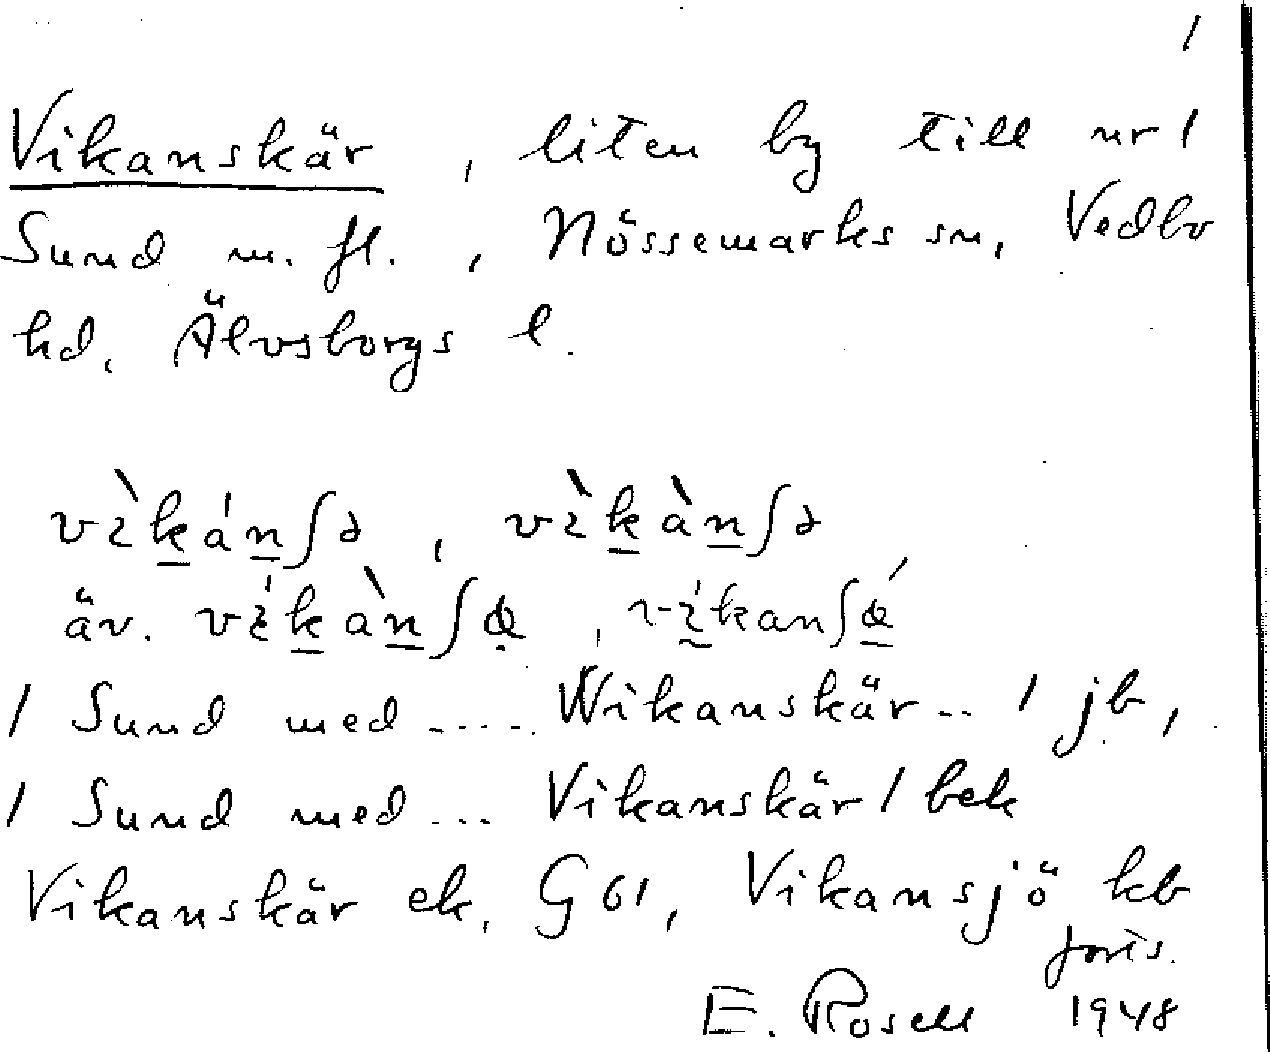 1
Vikanskär, liten by till nr 1
Sund m. fl., Nössemarks sn, Vedbo
hd, Älvsborgs l.
äv.
1 Sund med ..... Wikanskär .. 1 jb,
1 Sund med ... Vikanskär 1 bek
Vikanskär ek, G 61, Vikansjö kb
forts.
E. Rosell 1948